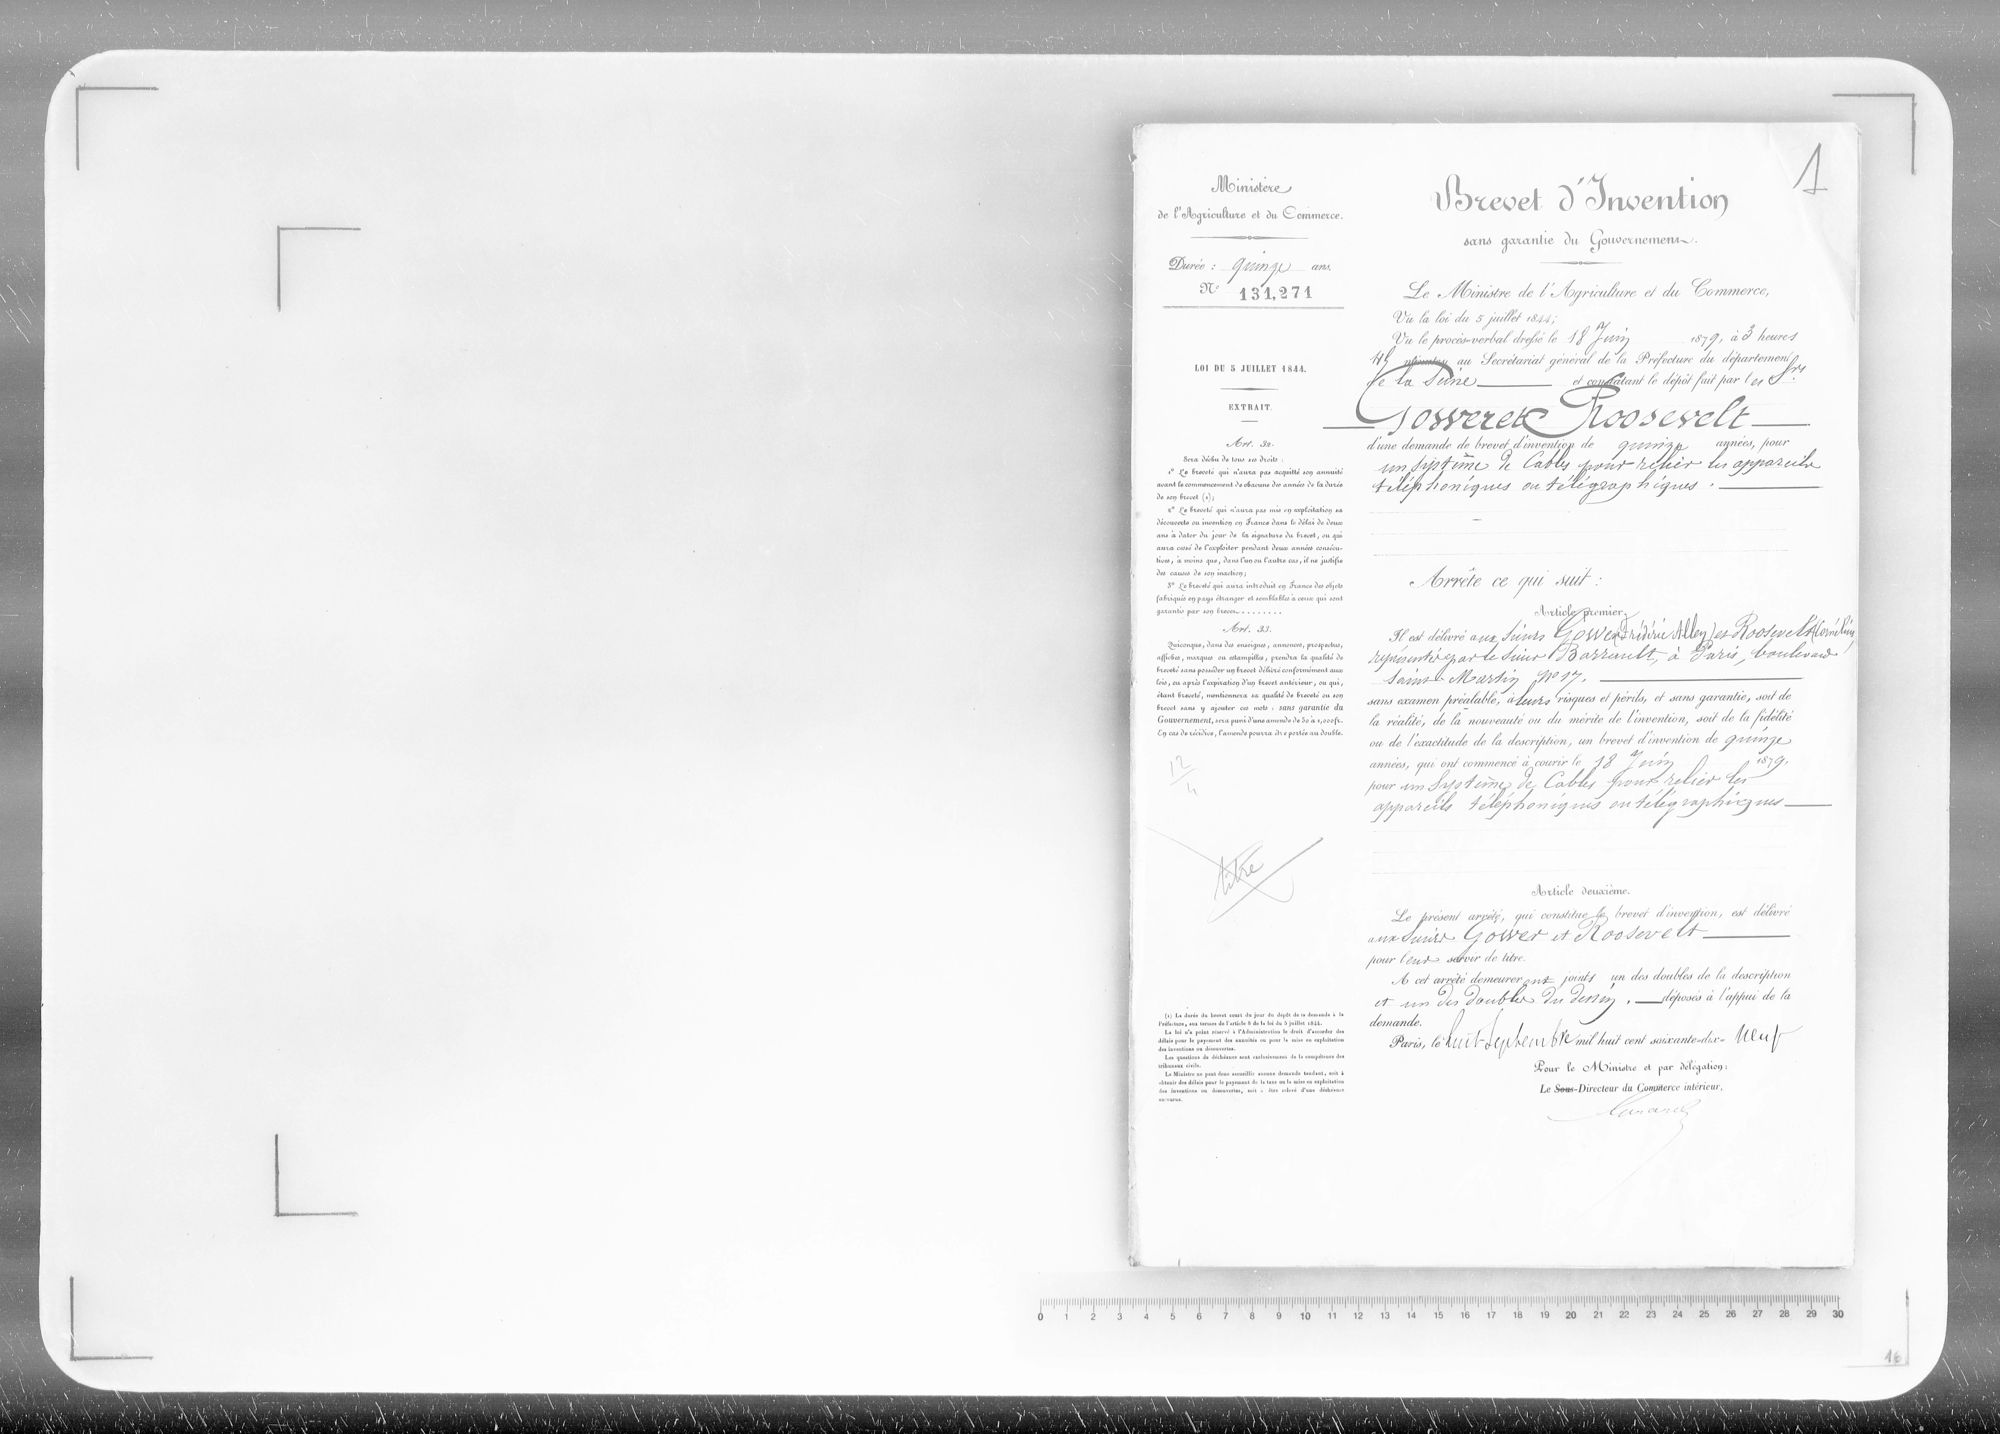 Ministère
de l'Agriculture et du Commerce.
Durée : quinze ans.
N° 131,271
LOI DU 5 JUILLET 1844.
EXTRAIT.
Art. 32.
Sera déchu de tous ses droits :
1° Le breveté qui n'aura pas acquitté son annuité
avant le commencement de chacune des années de la durée
de son brevet (1);
2° Le breveté qui n'aura pas mis en exploitation sa
découverte ou invention en France dans le délai de deux
ans à dater du jour de la signature du brevet, ou qui
aura cessé de l'exploiter pendant deux années consécu-
tives, à moins que, dans l'un ou l'autre cas, il ne justifie
des causes de son inaction;
3° Le breveté qui aura introduit en France des objets
fabriqués en pays étranger et semblables à ceux qui sont
garantis par son brevet........
Art. 33.
Quiconque, dans des enseignes, annonces, prospectus,
affiches, marques ou estampilles, prendra la qualité de
breveté sans posséder un brevet délivré conformément aux
lois, ou après l'expiration d'un brevet antérieur, ou qui,
étant breveté, mentionnera sa qualité de breveté ou son
brevet sans y ajouter ces mots : sans garantie du
Gouvernement, sera puni d'une amende de 50 à 1,000 fr.
En cas de récidive, l'amende pourra être portée au double.
12
4
titre
(1) La durée du brevet court du jour du dépôt de la demande à la
Préfecture, aux termes de l'article 8 de la loi du 5 juillet 1844.
La loi n'a point réservé à l'Administration le droit d'accorder des
délais pour le payement des annuités ou pour la mise en exploitation
des inventions ou découvertes.
Les questions de déchéance sont exclusivement de la compétence des
tribunaux civils.
Le Ministre ne peut donc accueillir aucune demande tendant, soit à
obtenir des délais pour le payement de la taxe ou la mise en exploitation
des inventions ou découvertes, soit à être relevé d'une déchéance
encourue.
1
Brevet d'Invention
sans garantie du Gouvernement.
Le Ministre de l'Agriculture et du Commerce,
Vu la loi du 5 juillet 1844;
Vu le procès-verbal dressé le 18 Juin 1879, à 3 heures
minutes au Secrétariat général de la Préfecture du département
de la Seine et constatant le dépôt fait par les Srs
Gower et Roosevelt
d'une demande de brevet d'invention de quinze années, pour
un système de Cables pour relier les appareils
téléphoniques ou télégraphiques.
Arrête ce qui suit :
Article premier.
Il est délivré aux Sieurs Gower (Frédéric Allen) et Roosevelt (Cornélius)
représentés par le Sieur Barrault, à Paris, boulevard
Saint-Martin N° 17.
sans examen préalable, à leurs risques et périls, et sans garantie, soit de
la réalité, de la nouveauté ou du mérite de l'invention, soit de la fidélité
ou de l'exactitude de la description, un brevet d'invention de quinze
années, qui ont commencé à courir le 18 Juin 1879,
pour un Système de Cables pour relier les
appareils téléphoniques ou télégraphiques
Article deuxième.
Le présent arrêté, qui constitue le brevet d'invention, est délivré
aux Sieurs Gower et Roosevelt
pour leur servir de titre.
A cet arrêté demeureront joints un des doubles de la description
et un des doubles du dessin. déposés à l'appui de la
demande.
Paris, le huit Septembre mil huit cent soixante-dix-neuf
Pour le Ministre et par délégation:
Le Sous-Directeur du Commerce intérieur,
0 1 2 3 4 5 6 7 8 9 10 11 12 13 14 15 16 17 18 19 20 21 22 23 24 25 26 27 28 29 30
16